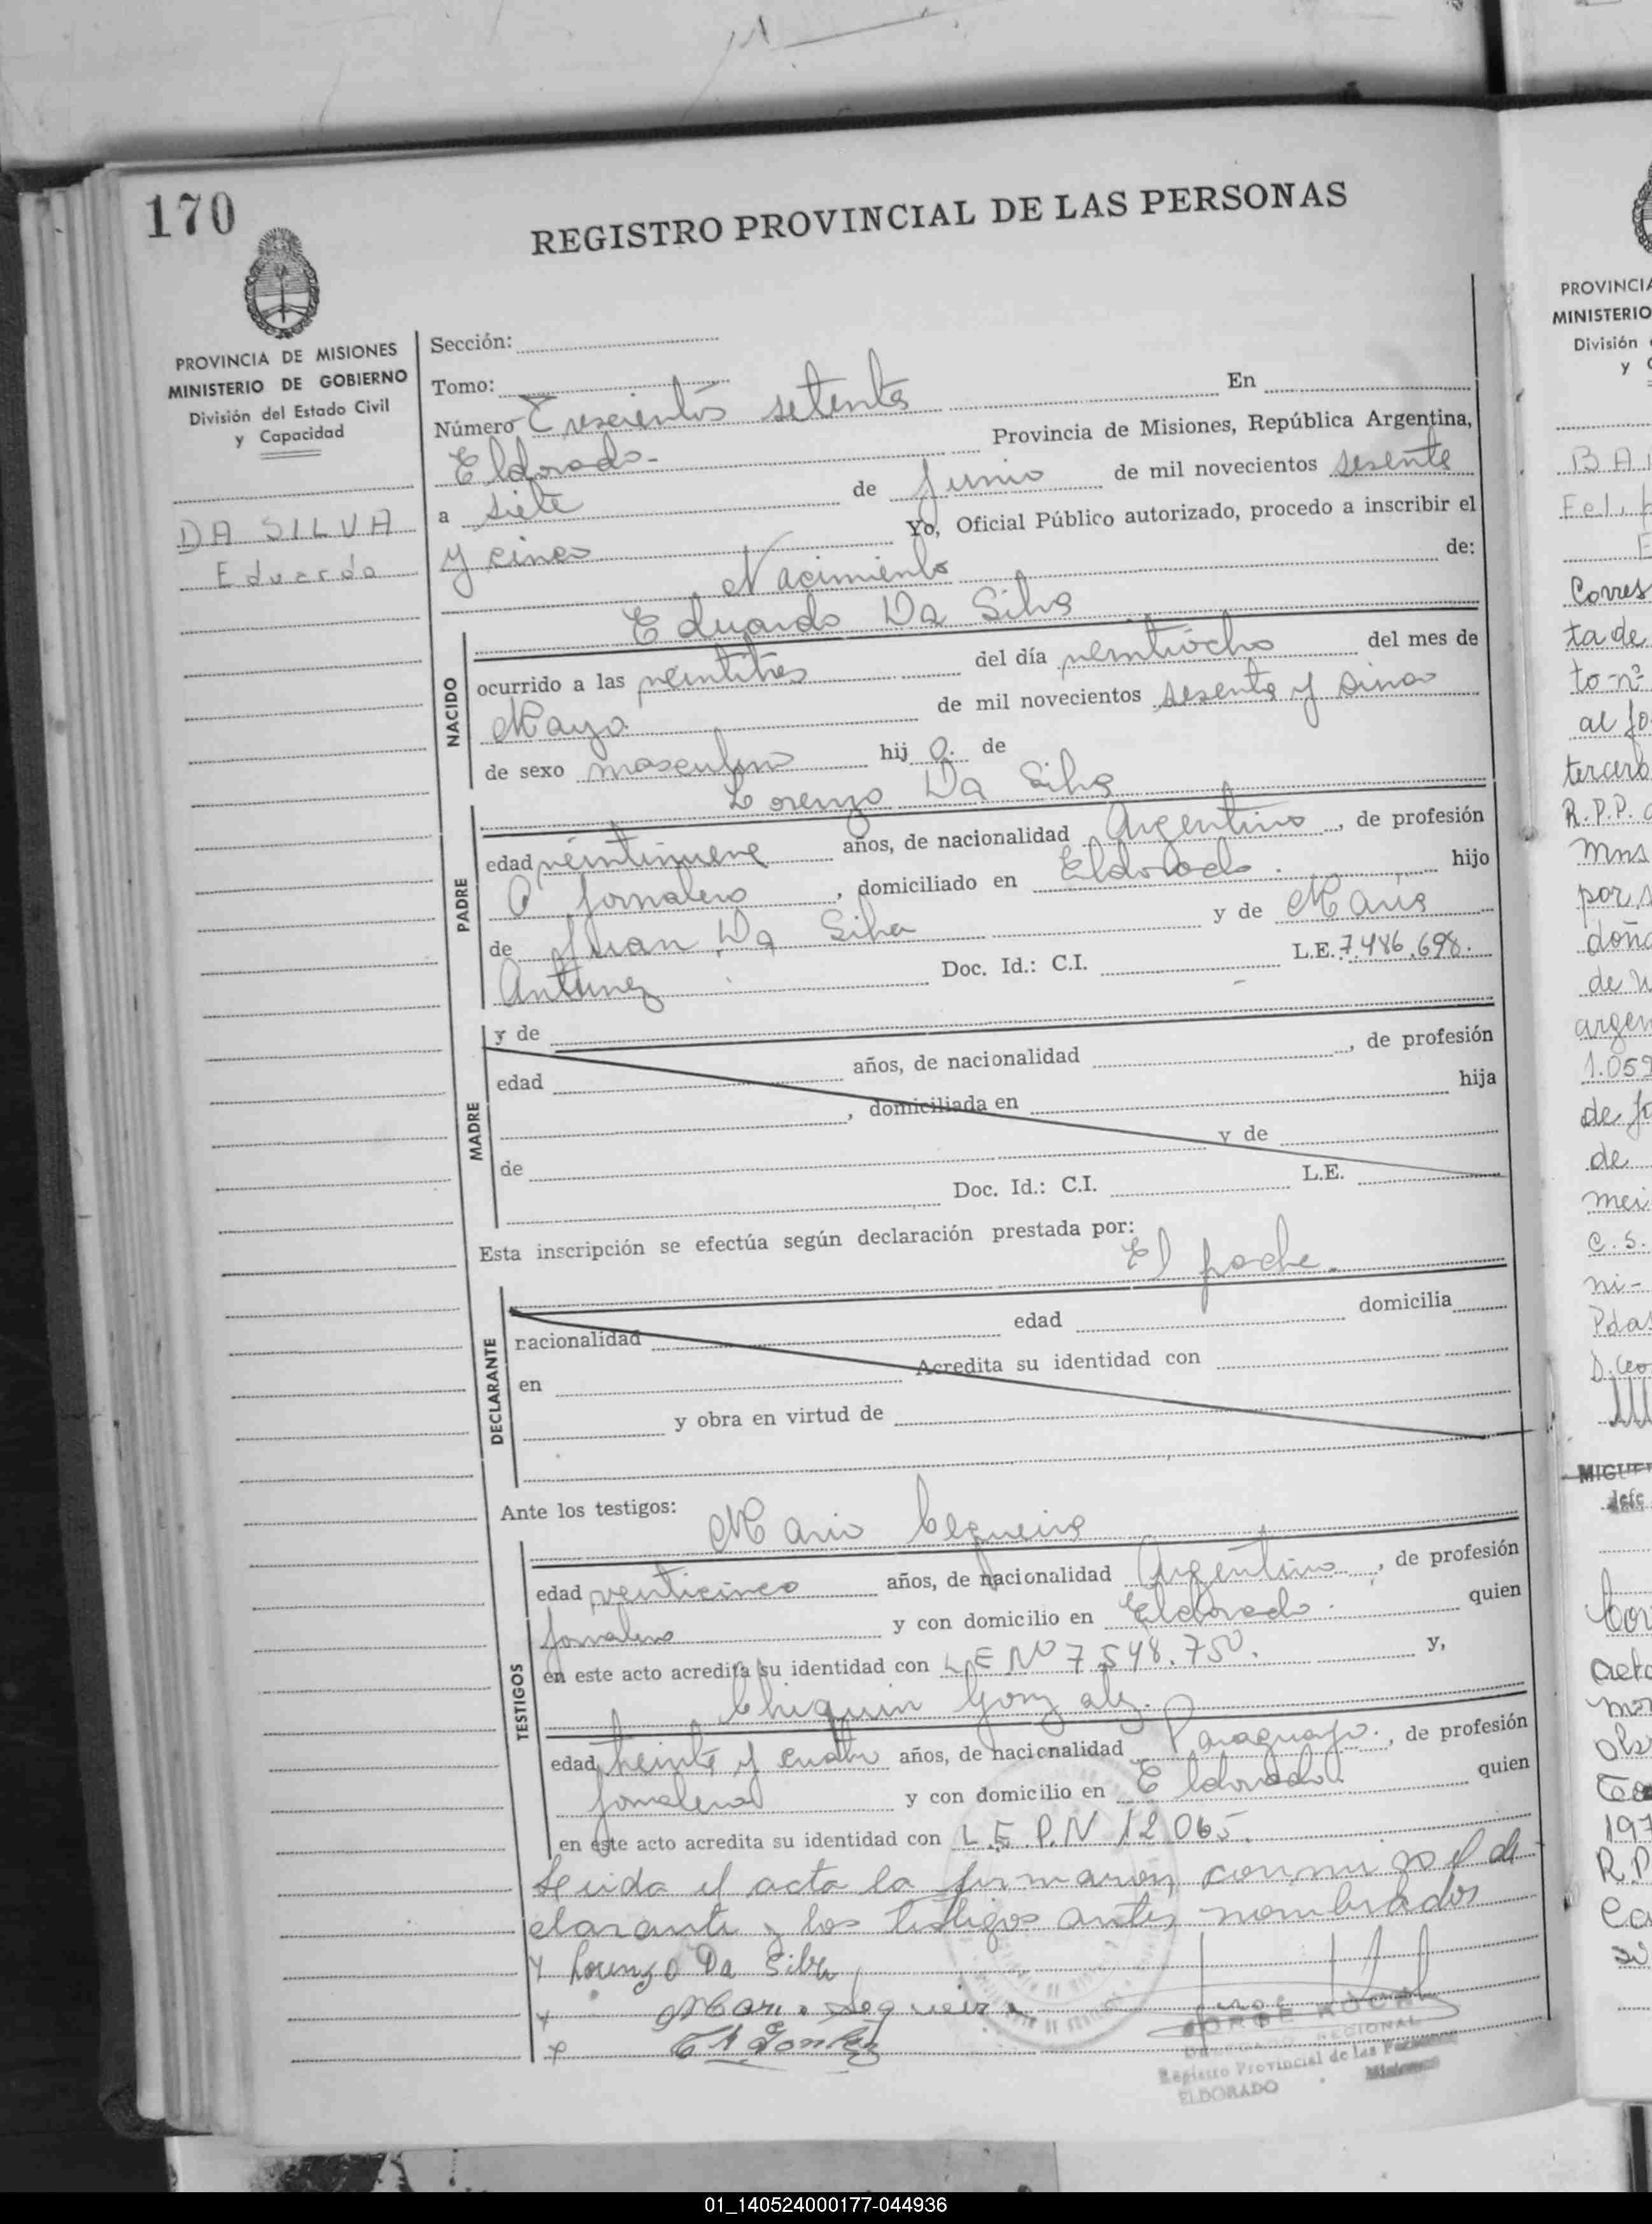 170
REGISTRO PROVINCIAL DE LAS PERSONAS
PROVINCIA DE MISIONES
MINISTERIO DE GOBIERNO
División del Estado Civil
y Capacidad
DA SILVA
Eduardo
Sección:
Tomo:
Número Trescientos setenta En
Eldorado- Provincia de Misiones, República Argentina,
a siete de junio de mil novecientos sesenta
y cinco Yo, Oficial Público autorizado, procedo a inscribir el
Nacimiento de:
Eduardo Da Silva
NACIDO
ocurrido a las veintitres del día veintiocho del mes de
Mayo de mil novecientos sesenta y sinco
de sexo masculino hij o. de
Lorenzo Da Silva
PADRE
edad veintinueve años, de nacionalidad Argentino, de profesión
jornalero, domiciliado en Eldorado. hijo
de Juan Da Silva y de Maria
Antunez Doc. Id.: C.I. L.E. 7.486.698.
MADRE
y de
edad años, de nacionalidad , de profesión
, domiciliada en hija
de y de
Doc. Id.: C.I. L.E.
Esta inscripción se efectúa según declaración prestada por:
El padre.
DECLARANTE
nacionalidad edad domicilia
en Acredita su identidad con
y obra en virtud de
Ante los testigos:
Mario
TESTIGOS
edad venticinco años, de nacionalidad Argentino, de profesión
jornalero y con domicilio en Eldorado. quien
en este acto acredita su identidad con L E Nº 7.548.750. y,
Chiquin Gonzalez.
edad treinta y cuatro años, de nacionalidad Paraguayo., de profesión
jornalero y con domicilio en Eldorado. quien
en este acto acredita su identidad con L.E.P.N 12065.
Leida el acta la firmaron conmigo el de
clarante y los testigos antes nombrados
Lorenzo Da Silva
Mario Sequeira
Ch Gonzalez
JORGE
REGIONAL
Registro Provincial de las Personas
ELDORADO Misiones
PROVINCIA
MINISTERIO
División
y
Corres
ta de
to nº
al fo
tercero
R.P.P.
mns
por s
doña
de
argen
1.059
de fo
de
mei
C.S.
ni-
Pdas
MIGUE
Jefe
R.P
01_140524000177-044936